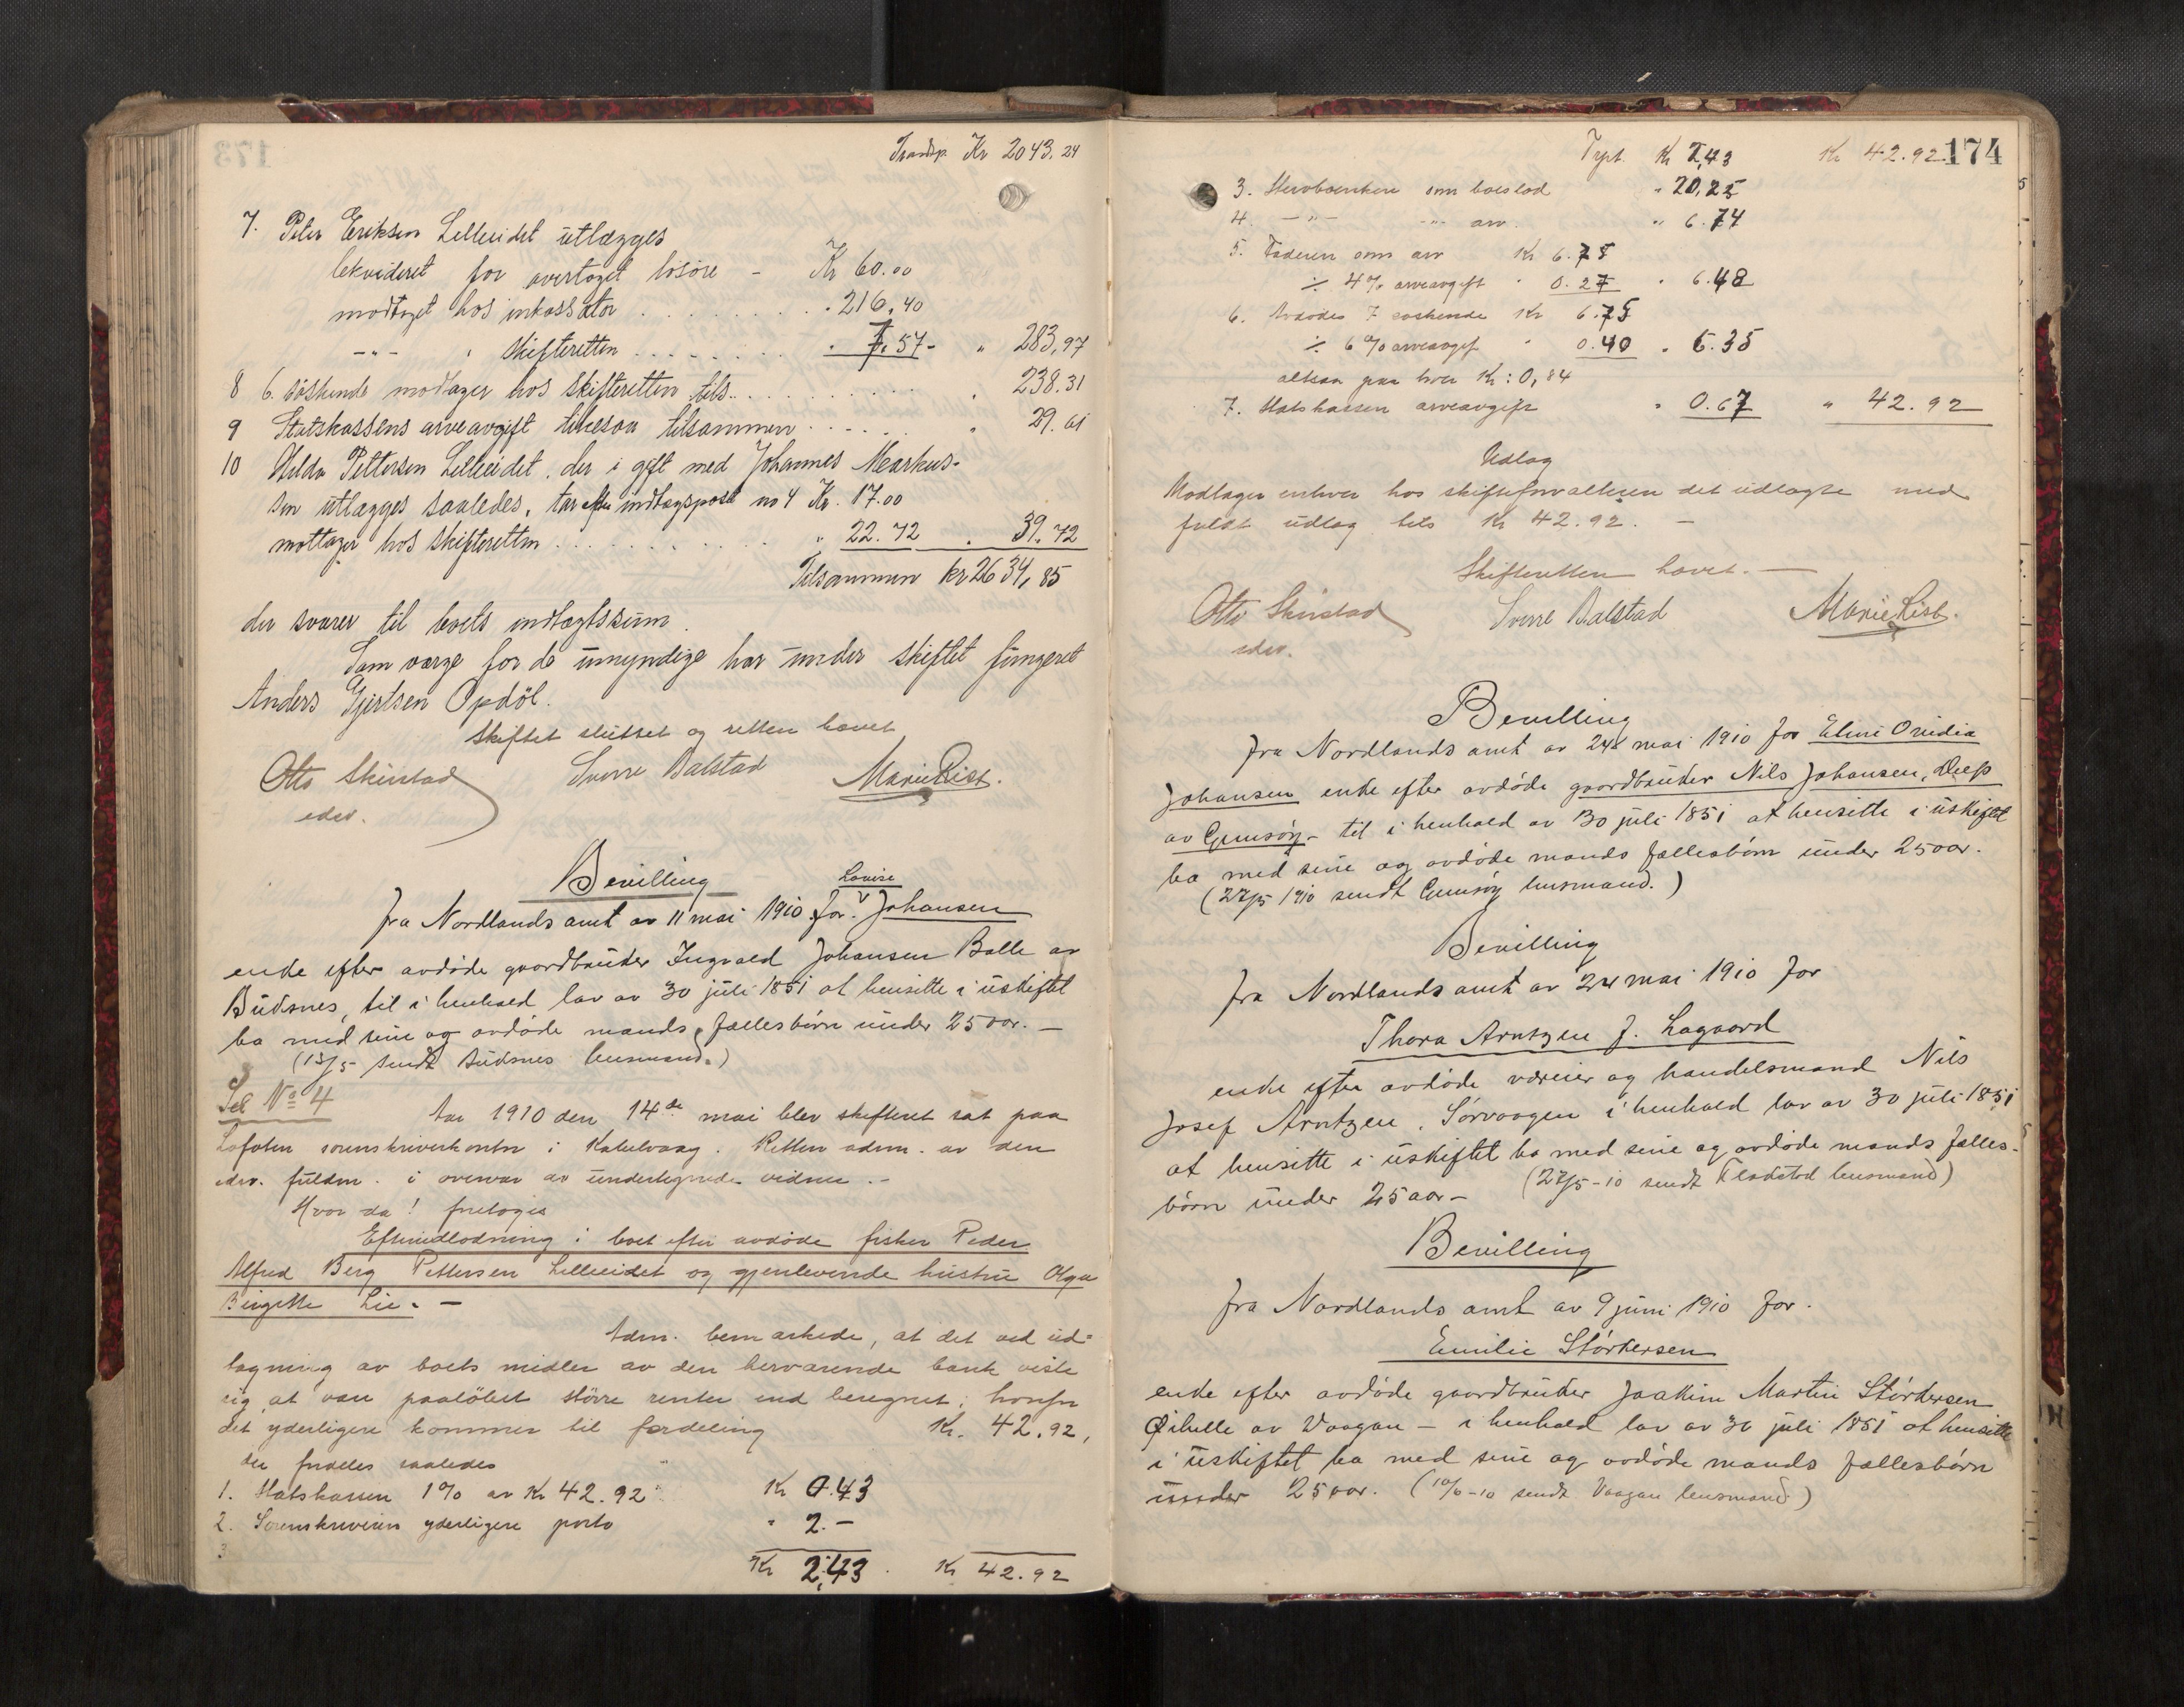 Transp. Kr 2043.24
7. Peter Eriksen Lilleeidet utlægges
likvideret for overtaget løsøre – Kr 60.00
modtaget hos inkassator . . . " 216,40
–"– " skifteretten . . . . " 7.57 – " 283,97
8 6 søskende modtager hos skifteretten tils. . . . " 238.31
9 Statskassens arveavgift likesaa tilsammen . . . . " 29.61
10 Hilda Pettersen Lilleeidet, der i gift med Johannes Markus-
sen utlægges saaledes, tar efter indtægspost no 4 Kr. 17.00
mottager hos skifteretten . . . . " 22.72 " 39.72
Tilsammen kr 2634,85
der svarer til boets indtægtssum.
Som værge for de umyndige har under skiftet fungeret
Anders Gjertsen Opdöl.
Skiftet sluttet og retten hævet
Otto Skirstad Sverre Balstad Marie Rist.
edsv.
Bevilling
Lovise
fra Nordlands amt av 11 mai 1910 for Johansen
enke efter avdøde gaardbruker Ingvald Johansen Balle av
Buksnes, til i henhold lov av 30 juli 1851 at hensitte i uskiftet
bo med sine og avdøde mands fællesbørn under 25 aar. –
(13/5 sendt Buksnes lensmand.)
Sel No 4
Aar 1910 den 14de mai blev skifteret sat paa
Lofoten sorenskriverkontor i Kabelvaag. Retten adm. av den
edsv. fuldm. i overvær av undertegnede vidner. –
Hvor da! foretoges
Efterudlodning i boet efter avdøde fisker Peder
Alfred Berg Pettersen Lilleeidet og gjenlevende hustru Olga
Birgitte Lie. –
Adm. bemærkede, at det ved ud-
tagning av boets midler av den herværende bank viste
sig at være paaløbet större renter end beregnet, hvorfor
det yderligere kommer til fordeling Kr. 42.92,
der fordeles saaledes
1. Statskassen 1% av Kr 42.92 Kr 0.43
2. Sorenskriveren yderligere porto " 2.–
3
Kr 2,43 Kr 42.92
174
Trpt. Kr 2,43 Kr 42.92
3. Stervboenken som boeslod " 20,25
4. –"– –"– arv. " 6.74
5. Faderen som arv Kr 6.75
÷ 4% arveavgift " 0.27 " 6.48
6. Avdødes 7 søskende Kr 6.75
÷ 6% arveavgif " 0.40 " 6.35
altsaa paa hver Kr: 0,84
7. Statskassen arveavgift " 0.67 " 42.92
Udlæg
Modtager enhver hos skifteforvalteren det udlagte med
fuldt udlæg tils Kr 42.92. –
Skifteretten hævet. –
Otto Skirstad Sverre Balstad Marie Rist.
edsv.
Bevilling
fra Nordlands amt av 24 mai 1910 for Elini Ovidia
Johansen enke efter avdøde gaardbruker Nils Johansen,
av Gimsøy – til i henhold av 30 juli 1851 at hensitte i uskiftet
bo med sine og avdøde mands fællesbørn under 25 aar.
(27/5 1910 sendt Gimsøy lensmand.)
Bevilling
fra Nordlands amt av 24 mai 1910 for
Thora Arntzen f. Lagaard
enke efter avdøde væreier og handelsmand Nils
Josef Arntzen, Sørvaagen i henhold lov av 30 juli 1851
at hensitte i uskiftet bo med sine og avdøde mands fælles-
børn under 25 aar – (27/5-10 sendt Flakstad lensmand)
Bevilling
fra Nordlands amt av 9 juni 1910 for.
Emilie Størkersen
enke efter avdøde gaardbruker Joakim Martin Størkersen
Ørihelle av Vaagan – i henhold lov av 30 juli 1851 at hensitte
i uskiftet bo med sine og avdøde mands fællesbørn
under 25 aar. (10/6-10 sendt Vaagan lensmand)